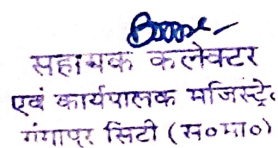 सहायक कलेक्टर
एवं कार्यपालक मजिस्ट्रे०
गंगापुर सिटी (स०मा०)